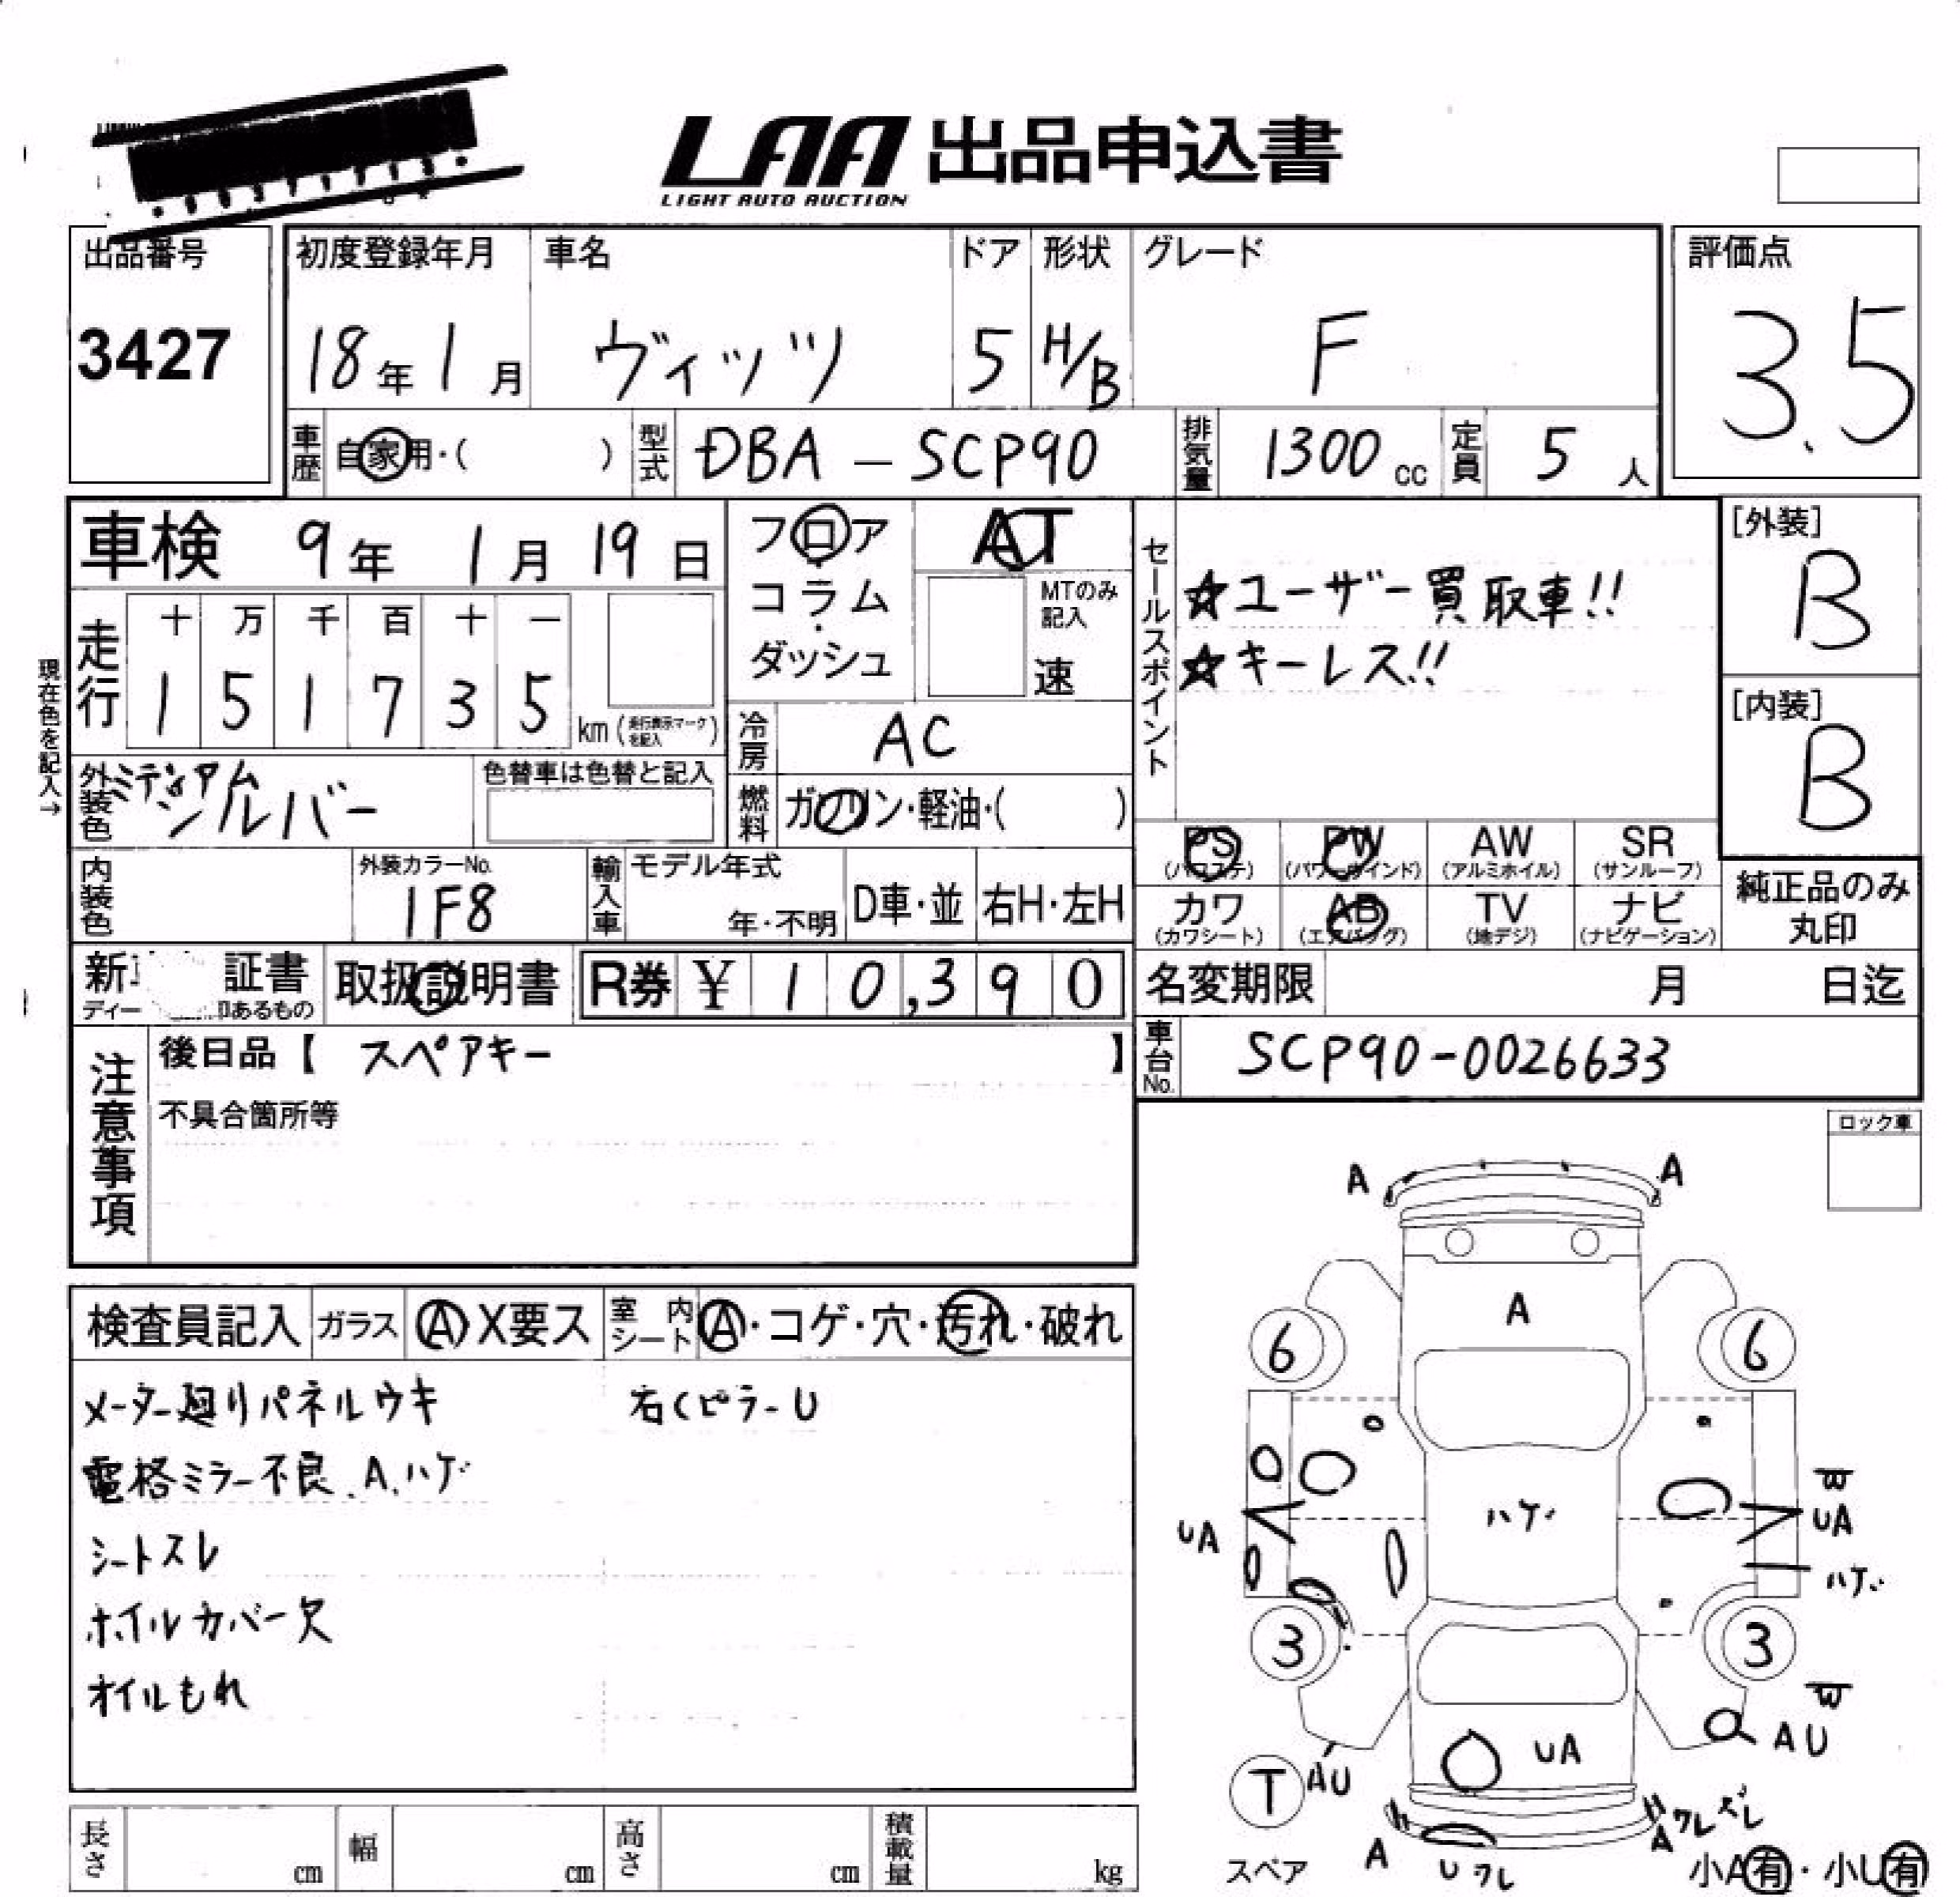 LAA 出品申込書
LIGHT AUTO AUCTION
出品番号
3427
初度登録年月
18年 1月
車名
ヴィッツ
ドア
5
形状
H/B
グレード
F
評価点
3.5
車歴
自家用・( )
型式
DBA - SCP90
排気量
1300 cc
定員
5 人
車検 9年 1月 19日
フロア
・
コラム
・
ダッシュ
AT
MTのみ
記入
速
セールスポイント
☆ユーザー買取車!!
☆キーレス!!
[外装]
B
[内装]
B
現在色を記入→
走行
十 万 千 百 十 一
1 5 1 7 3 5
km (走行表示マークを記入)
冷房
AC
外装色
ミディアム
シルバー
色替車は色替と記入
燃料
ガソリン・軽油・( )
PS
(パワステ)
PW
(パワーウインド)
AW
(アルミホイル)
SR
(サンルーフ)
カワ
(カワシート)
AB
(エアバッグ)
TV
(地デジ)
ナビ
(ナビゲーション)
純正品のみ
丸印
内装色
外装カラーNo.
1F8
輸入車
モデル年式
年・不明
D車・並
右H・左H
新 証書
ディー 印あるもの
取扱説明書
R券 ¥ 10,390
名変期限
月 日迄
注意事項
後日品【 スペアキー 】
不具合箇所等
車台No.
SCP90-0026633
ロック車
検査員記入
ガラス
A X要ス
室内シート
A・コゲ・穴・汚れ・破れ
メーター廻りパネルウキ
右Cピラー U
電格ミラー不良.A.ハゲ
シートスレ
ホイルカバー欠
オイルもれ
A A
A
6 6
ハゲ
UA
W
UA
ハゲ
3 3
W
AU
UA
T
AU
スペア
A
Uワレ
A
ワレズレ
小A有・小U有
長さ
cm
幅
cm
高さ
cm
積載量
kg